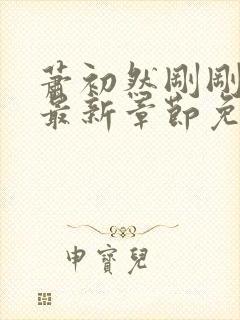 蕭初然剛剛
最新章節免
申寶兒